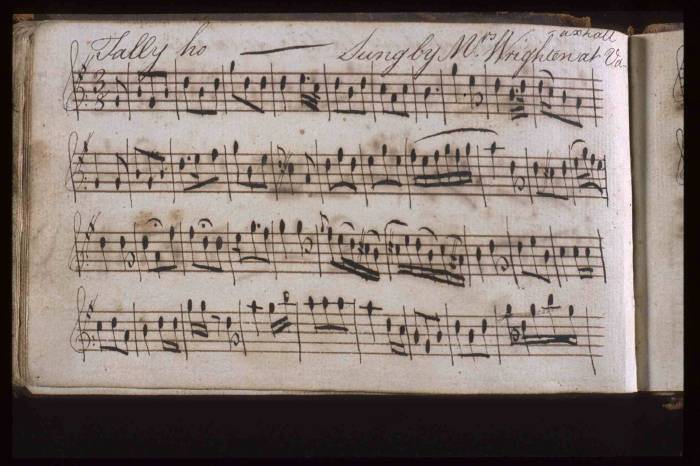 Tally ho — Sung by Mrs Wrighten at Vauxhall